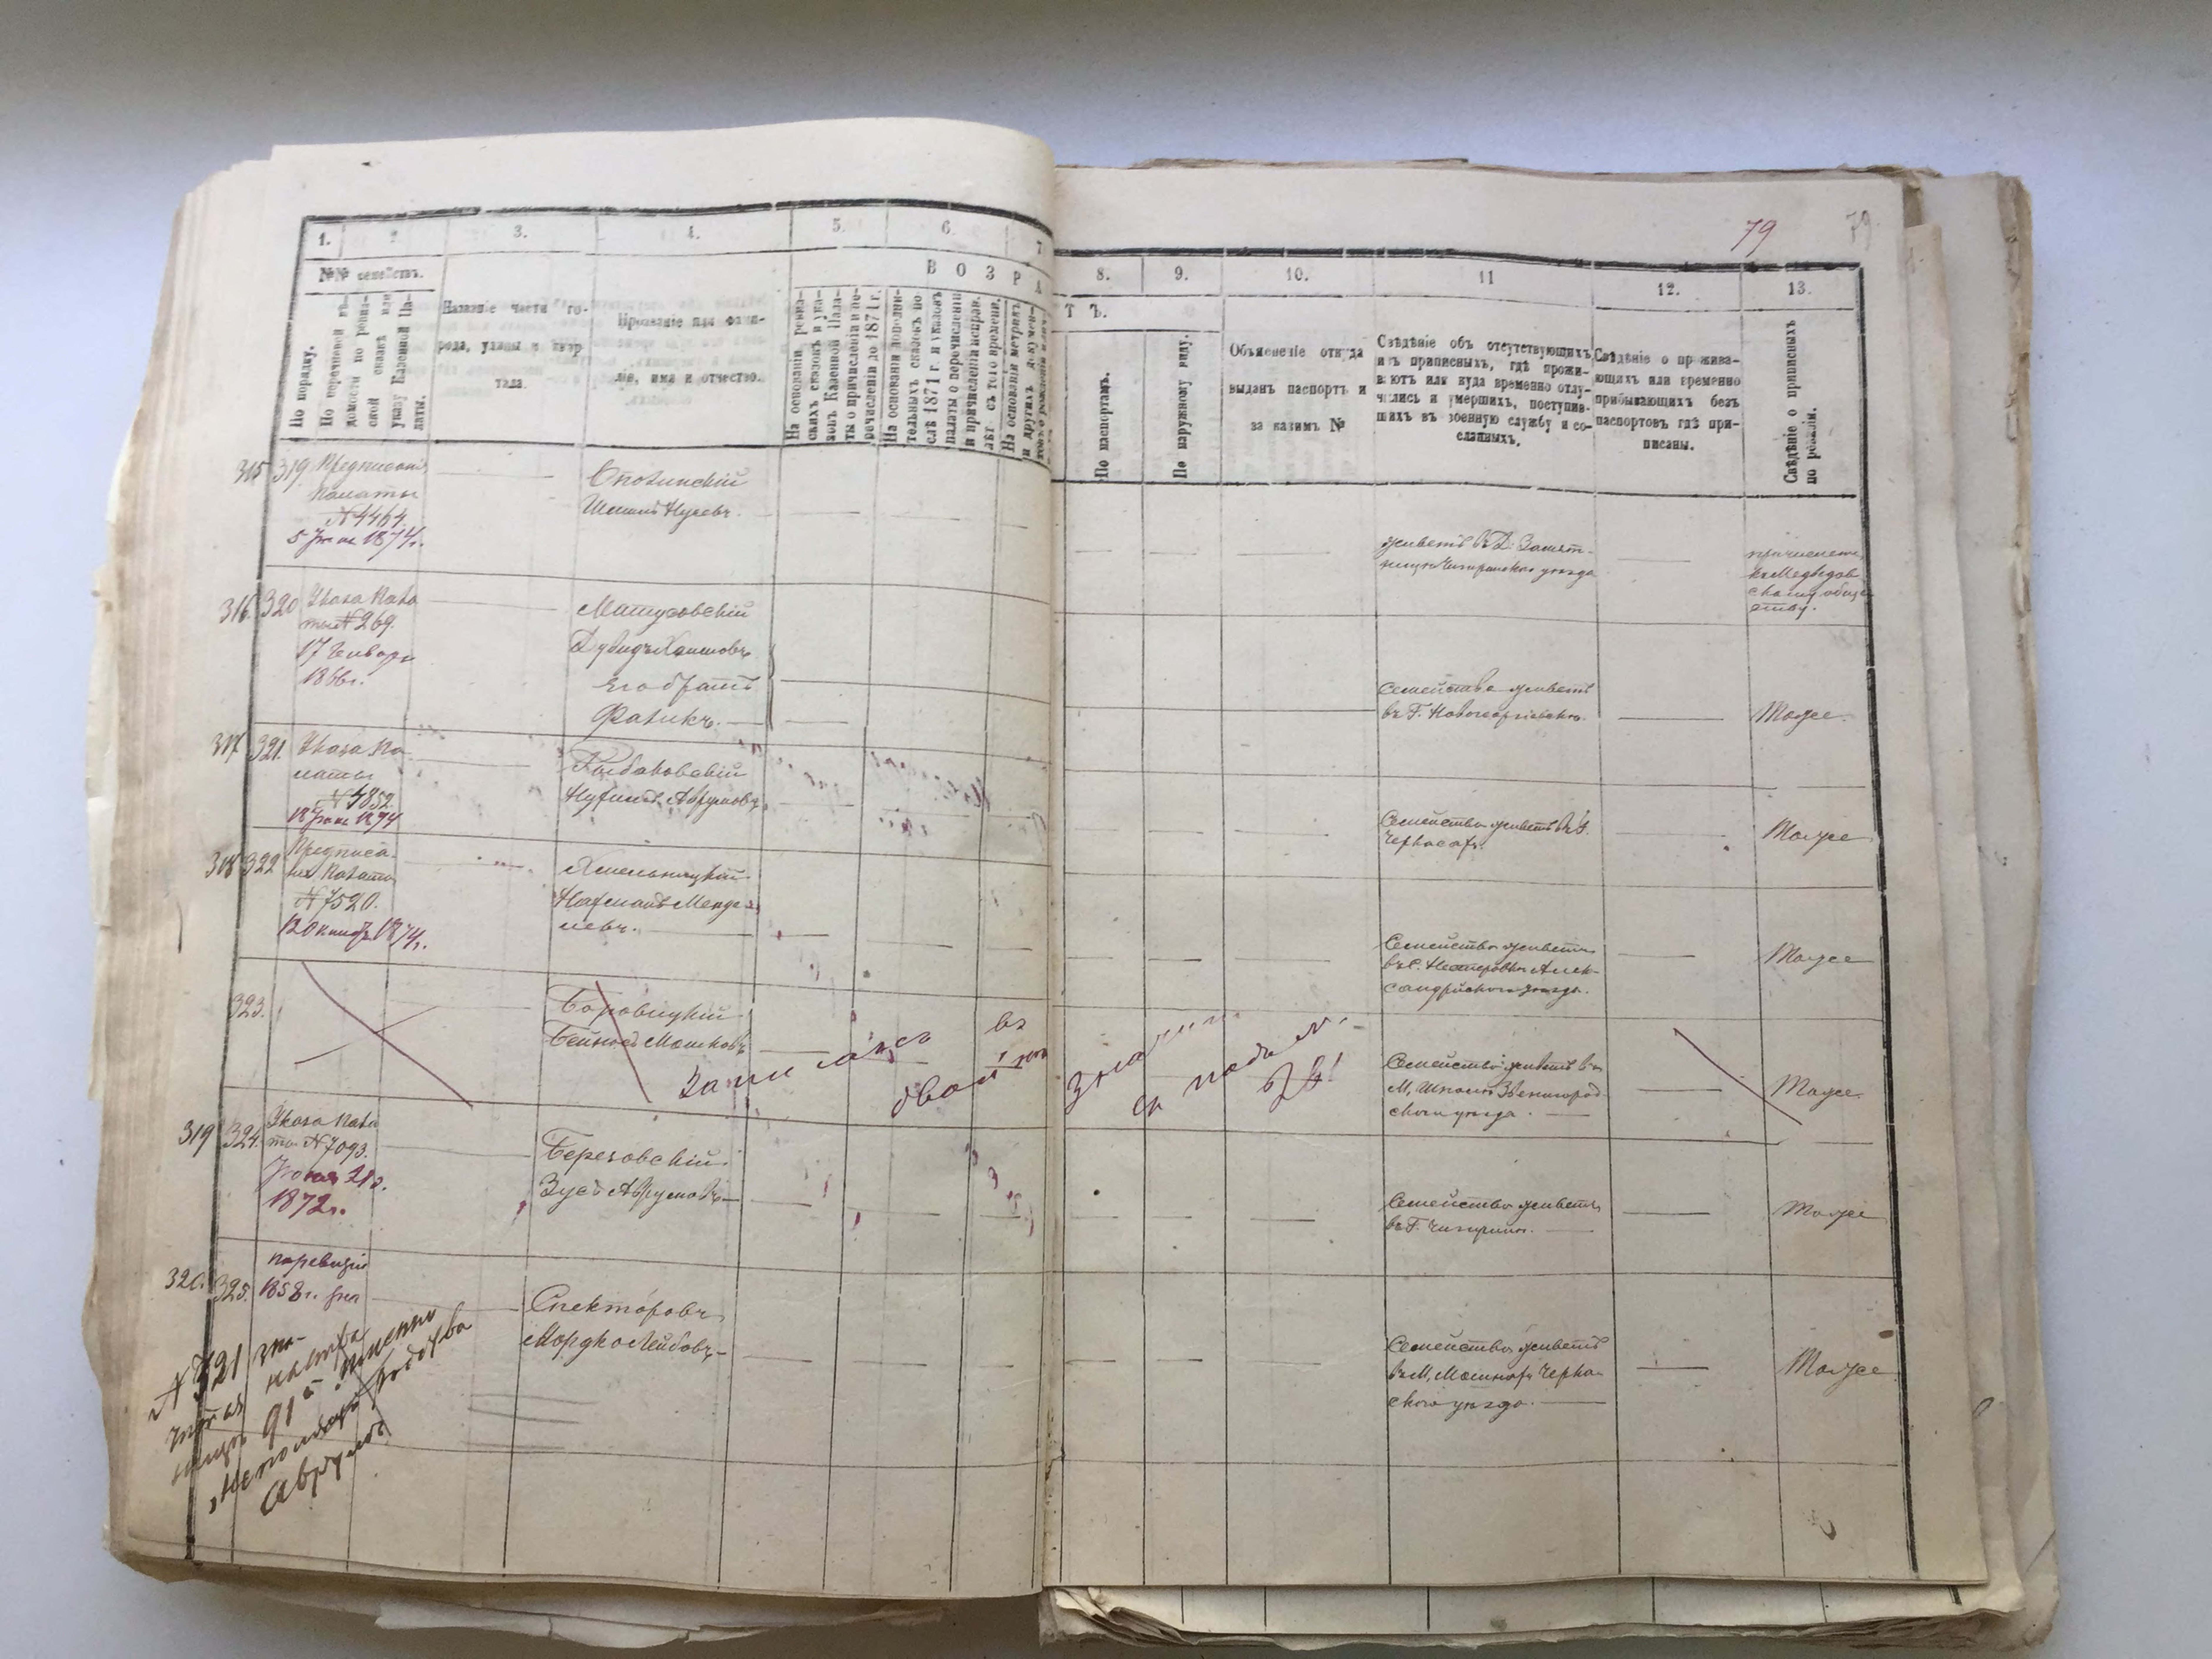 79
79.
1.
2
3.
4.
5.
6.
7
8.
9.
10.
11
12.
13.
№№ семействъ.
ВОЗРА
ТЪ.
По порядку.
По перечневой вѣ-
домости по ревиз-
ской сказкѣ или
указу Казенной Па-
латы.
Названіе части го-
рода, улицы и квар
тала.
Прозваніе или фами-
лія, имя и отчество.
На основаніи ревиз-
скихъ сказокъ и ука-
зовъ Казенной Пала-
ты о причисленіи и пе-
речисленіи до 1871 г.
На основаніи дополни-
тельныхъ сказокъ по-
слѣ 1871 г. и указовъ
палаты о перечисленіи
и причисленіи исправ.
лѣт съ того времени.
На основаніи метрикъ
и другихъ докумен-
По паспортамъ.
По наружному виду.
Объясненіе откуда
выданъ паспортъ и
за какимъ №
Свѣдѣніе объ отсутствующихъ
изъ приписныхъ, гдѣ прожи-
ваютъ или куда временно отлу-
чились и умершихъ, поступив-
шихъ въ военную службу и со-
сланныхъ.
Свѣдѣніе о прожива-
ющихъ или временно
прибывающихъ безъ
паспортовъ гдѣ при-
писаны.
Свѣдѣніе о приписныхъ
по ревизіи.
315 319. Предписанія
Палаты
№ 4464.
5 Іюня 1874г.
Сполинскій
живетъ въ Д. Замят-
ницѣ Чигиринскаго уѣзда
причисленъ
къ Медведов
скому обще
ству.
316. 320 Указа Пала
ты № 269.
17 Генваря
1866г.
Матусовскій
Дувидъ Хаимовъ
Его братъ
Фаликъ.
Семейство живетъ
въ Г. Новогеоргіевскѣ.
Тоже.
317. 321. Указа Па-
латы
№ 4852.
18 Іюня 1874
Рыбаковскій
Нухимъ Аврумовъ
Семейство живетъ въ Г.
Черкасахъ.
Тоже
318 322 Предписа-
нія Палаты
№ 7520.
12 Октяб. 1874г.
Хмельницкій
Нахманъ Менде
левъ.
Семейство живетъ
въ С. Нестеровкѣ Алек-
сандрійскаго уѣзда.
Тоже
323.
Боровицкій
Бейнишъ Мошковъ
Записанъ въ
двойнѣ
Семейство живетъ въ
М. Шполѣ Звенигород
скаго уѣзда.
Тоже.
319 324. Указа Пала
ты № 7093.
Іюня 21 д.
1872г.
Березовскій
Зусь Аврумовъ
Семейство живетъ
въ Г. Чигиринѣ.
Тоже
320. 325. по ревизіи
1858г.
Спекторовъ
Мордко Лейбовъ
Семейство живетъ
въ М. Мошнахъ Черка-
скаго уѣзда.
Тоже
№ 321
91
Аврумъ